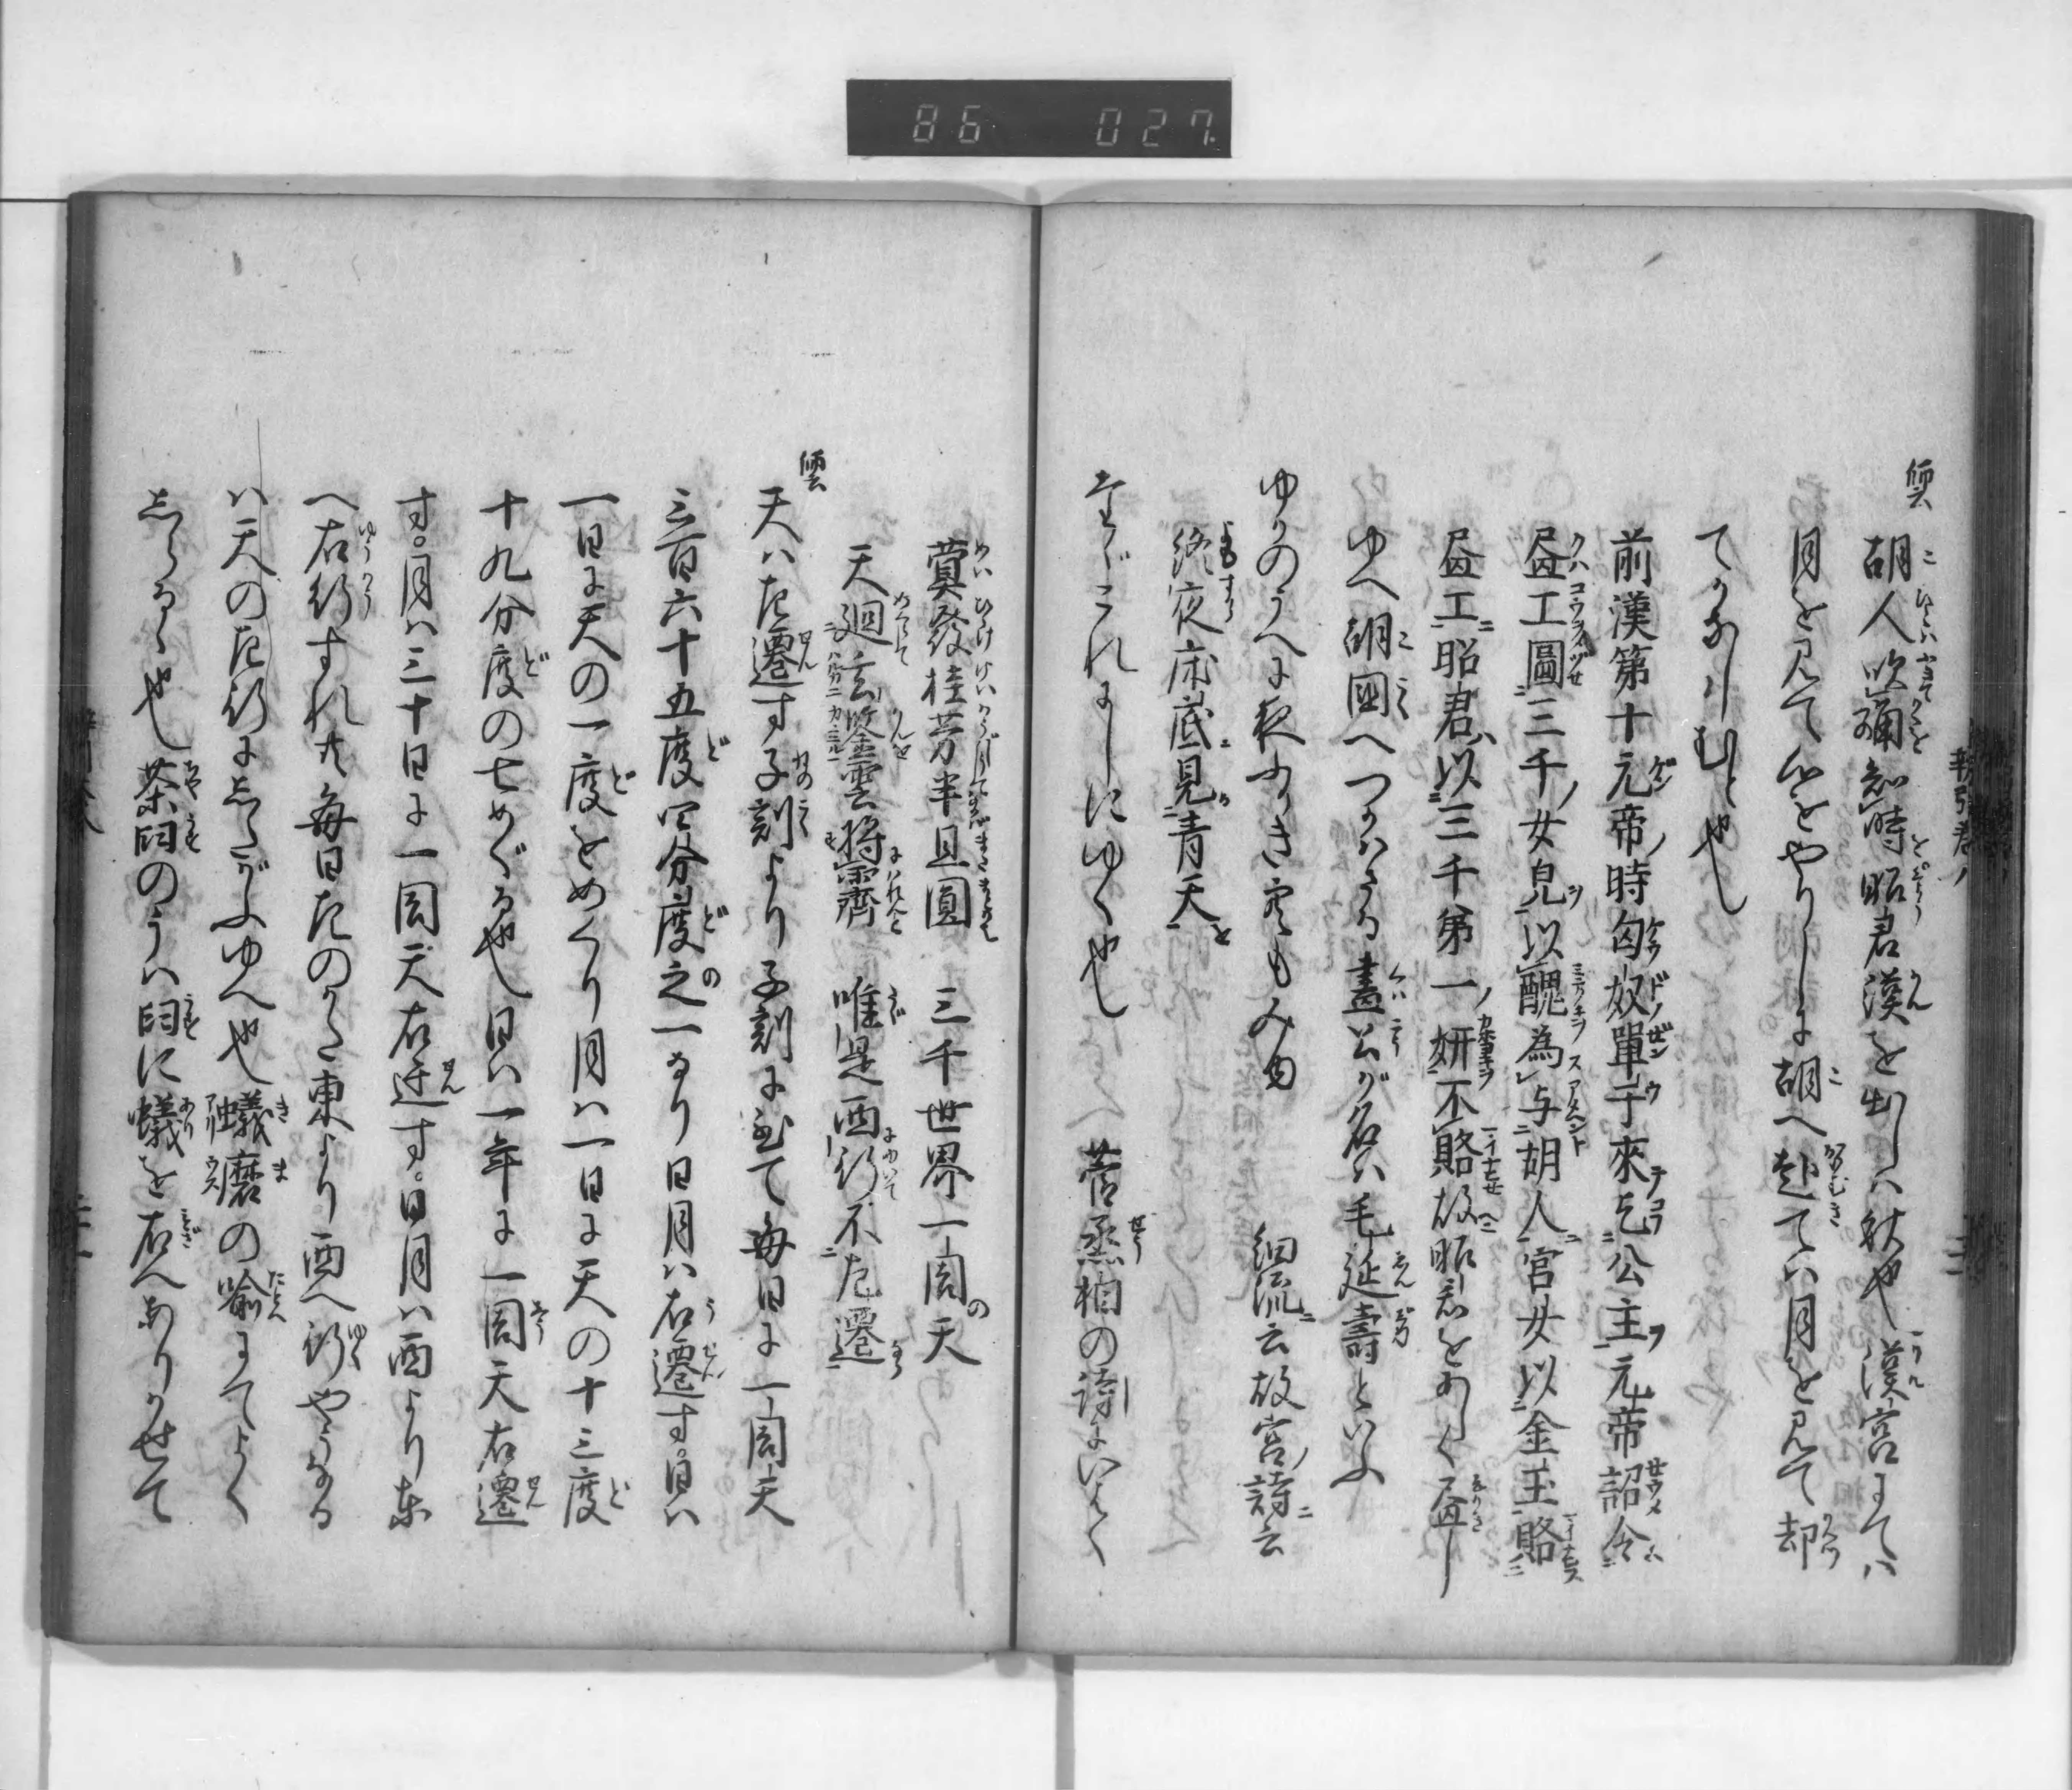 86 027
傳云
胡人吹笛知時昭君漢を出しハ秋也漢宮にてハ
月を見て心をやりしに胡へ赴てハ月を見て却
てかなしむと也
前漢第十元帝ノ時匈奴單于來乞公主元帝詔令
畫工圖三千女皃以醜為与胡人宮女以金玉賂
畫工昭君ハ以三千第一妍不賂故昭君をあしく畫し
ゆへ胡國へつかハさる畫工が名ハ毛延壽といふ
ゆかのうへに夜ふかき空もみゆ 細流云故宮ノ詩ニ云
終夜床底見青天
たゞこれにしにゆく也 菅丞相の詩にいはく
蓂發桂芳半且圓 三千世界一周天
天廻玄鑒雲將霽 唯是西行不左遷
傳云
天ハ左遷す子刻より子刻に至て毎日に一周天
三百六十五度四分度之一なり日月ハ右遷す。日ハ
一日に天の一度をめくり月ハ一日に天の十三度
十九分度の七めぐる也日ハ一年に一周天右遷
す。月ハ三十日に一周天右遷す。日月ハ西より東
へ右行すれ共毎日左のかた東より西へ行やうなる
ハ天の左行にしたがふゆへ也蟻磨の喩にてよく
しらるゝ也茶臼のうハ臼に蟻を右へありかせて